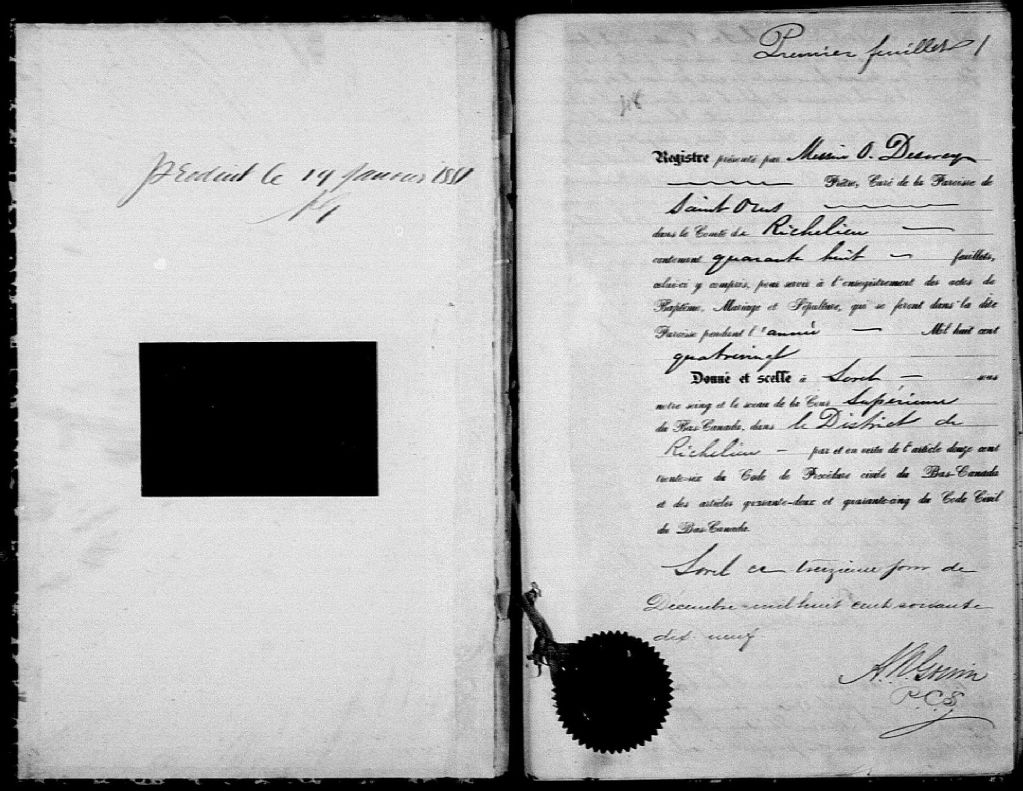 Produit le 19 Janvier 1881
Premier feuillet 1
48
Registre présenté par Messire O. Desorcy
Prêtre, Curé de la Paroisse de
Saint Ours
dans le Comté de Richelieu
contenant quarante huit feuillets,
celui-ci y compris, pour servir à l'enregistrement des actes de
Baptême, Mariage et Sépulture, qui se feront dans la dite
Paroisse pendant l'année Mil huit cent
quatrevingt
Donné et scellé à Sorel sous
notre seing et le sceau de la Cour Supérieure
du Bas-Canada, dans le District de
Richelieu par et en vertu de l'article douze cent
trente-six du Code de Procédure civile du Bas-Canada
et des articles quarante-deux et quarante-cinq du Code Civil
du Bas-Canada.
Sorel ce treizieme jour de
Décembre mil huit cent soixante
dix neuf
A. N. Gouin
P.C.S.